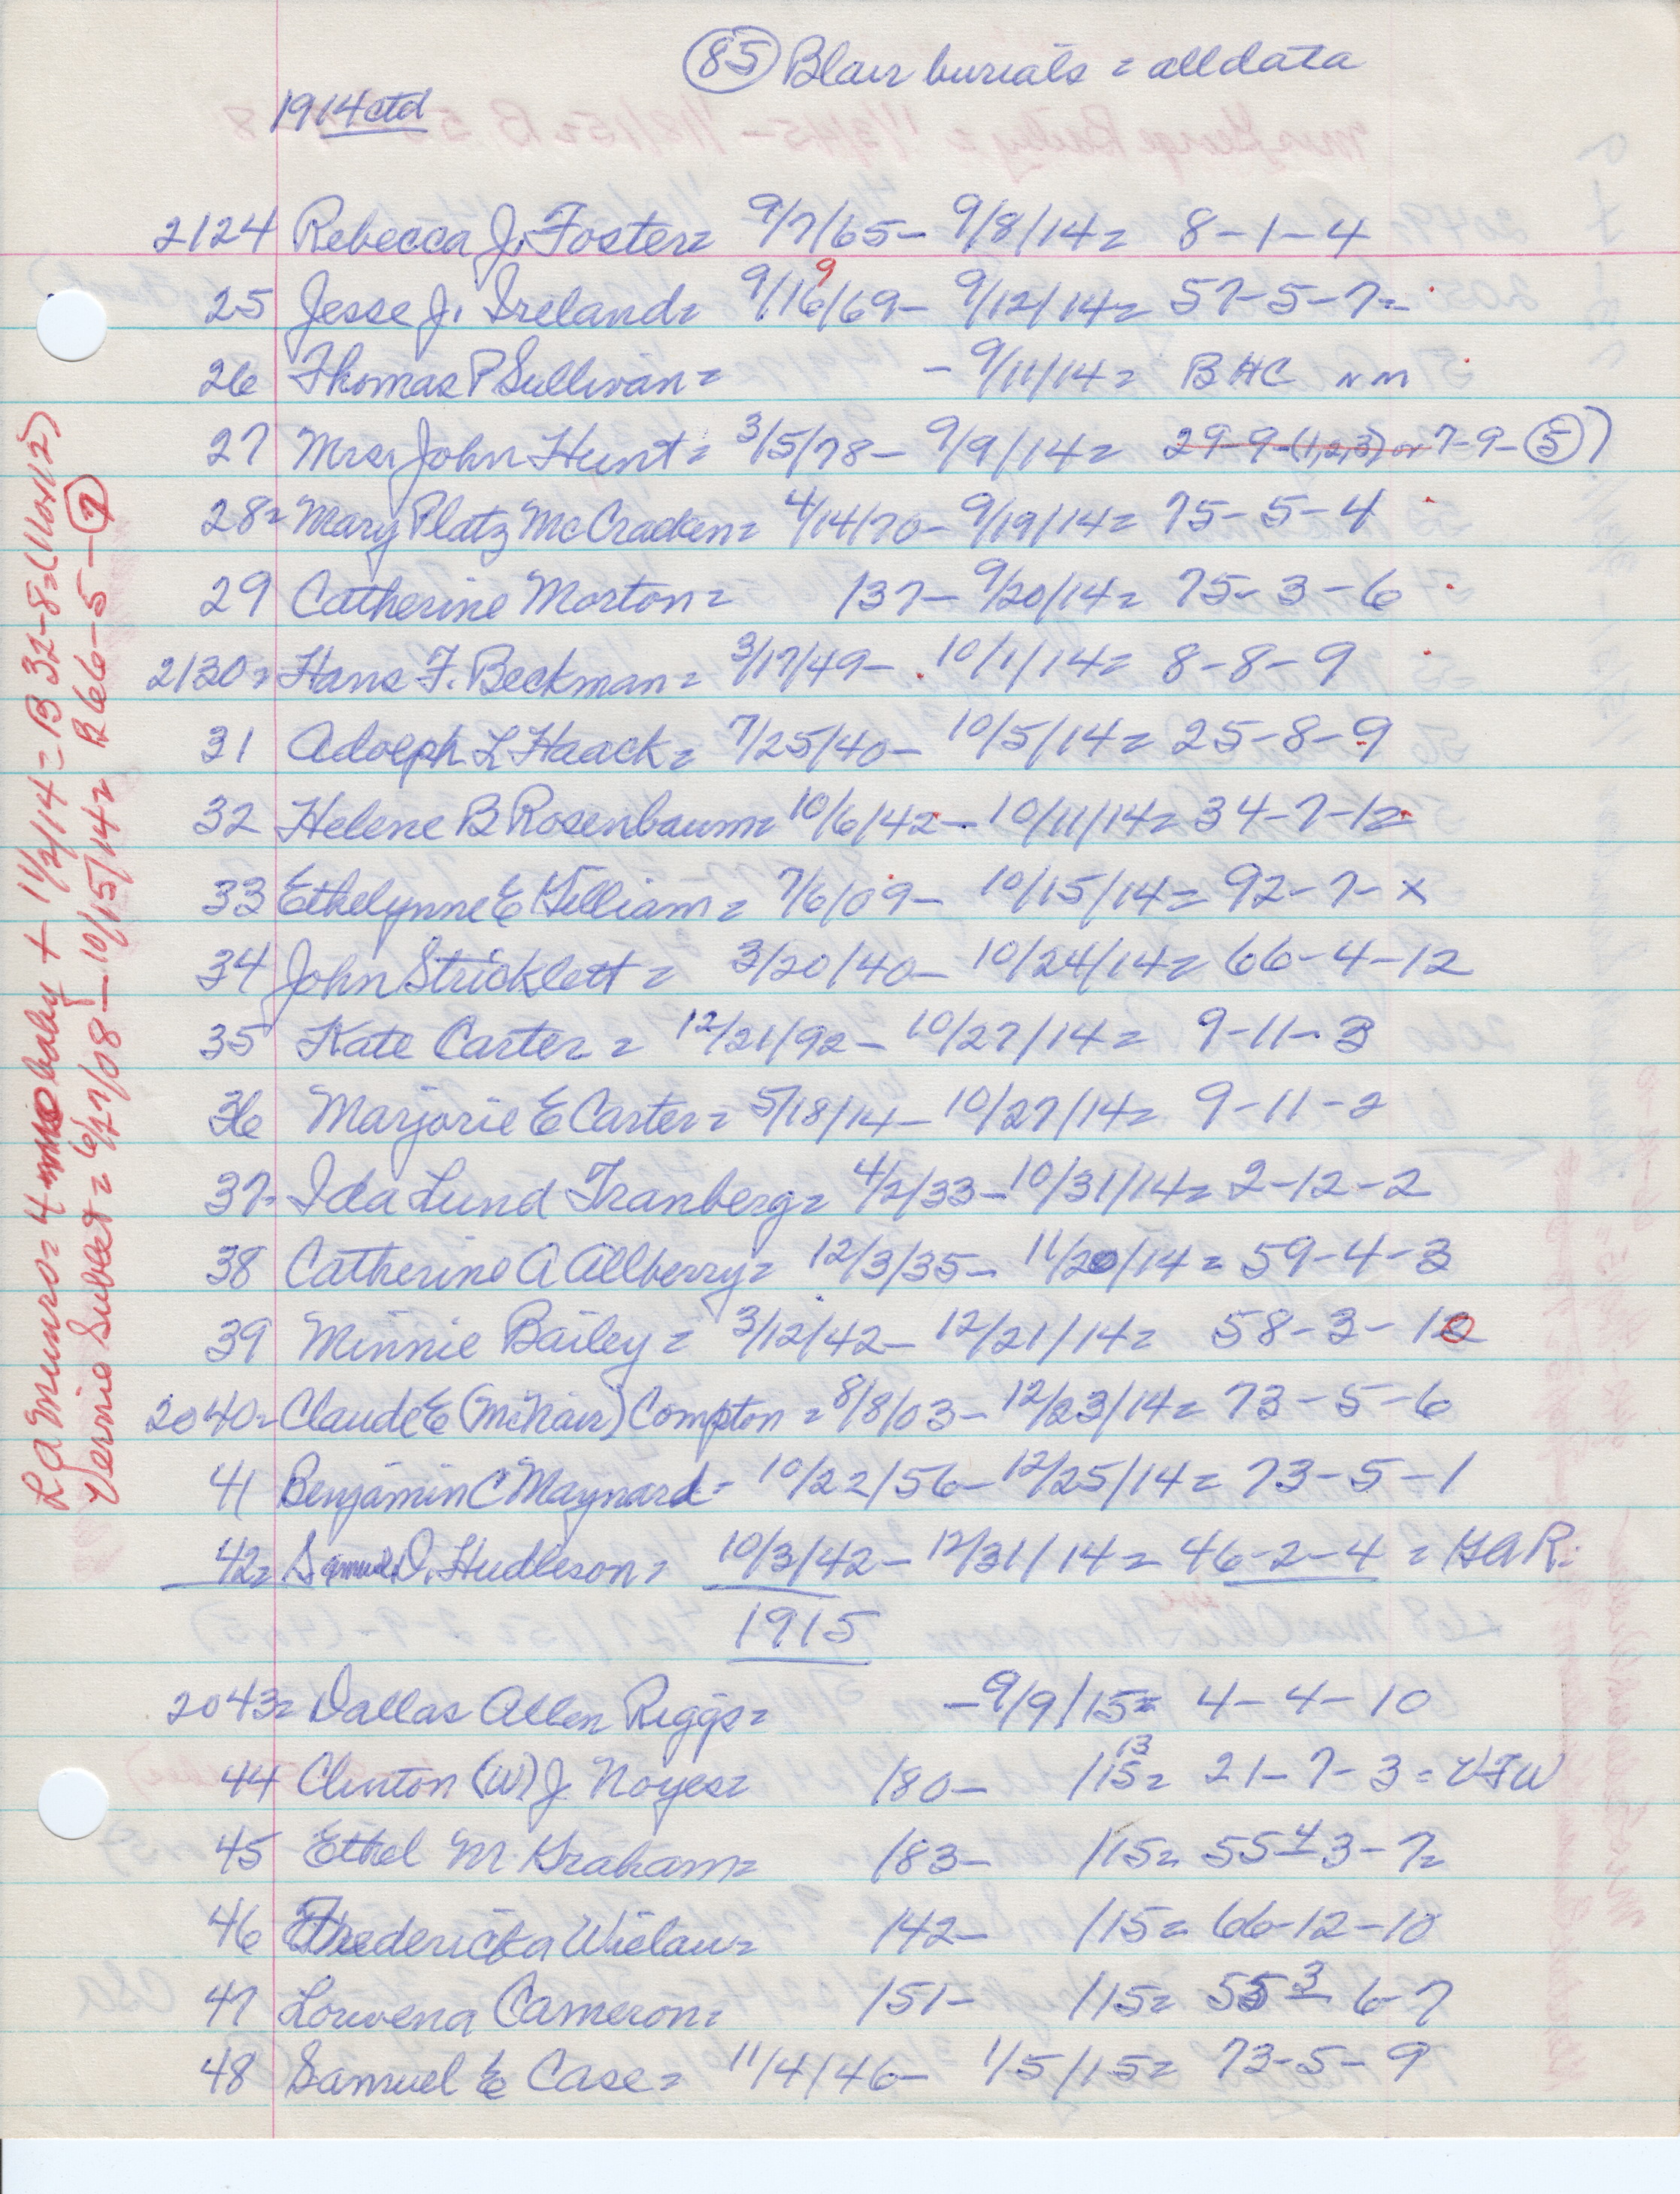 (85) Blair burials = all data
1914 ctd
2124 Rebecca J. Foster= 9/7/65- 9/8/14= 8-1-4
9
25 Jesse J. Ireland= 9/16/69- 9/12/14= 57-5-7=
26 Thomas P Sullivan= -9/11/14= BHC NM
27 Mrs. John Hunt= 3/5/78- 9/9/14= 29-9-(1,2,3) or 7-9-(5))
28= Mary Platz McCracken= 4/14/70- 9/19/14= 75-5-4
29 Catherine Morton= /37- 9/20/14= 75-3-6
2130= Hans F. Beckman= 3/17/49- 10/1/14= 8-8-9
31 Adolph L Haack= 7/25/40- 10/5/14= 25-8-9
32 Helene B Rosenbaum= 10/6/42- 10/11/14= 34-7-12
33 Ethelynne E Gilliam= 7/6/09- 10/15/14= 92-7-x
34 John Stricklett= 3/20/40- 10/24/14= 66-4-12
35 Kate Carter= 12/21/92- 10/27/14= 9-11-3
36 Marjorie E Carter= 5/18/14- 10/27/14= 9-11-2
37= Ida Lund Tranberg= 4/2/33- 10/31/14= 2-12-2
38 Catherine A Allberry= 12/3/35- 11/20/14= 59-4-3
39 Minnie Bailey= 3/12/42- 12/21/14= 58-3-10
2040= Claude E (McNair) Compton= 8/8/03- 12/23/14= 73-5-6
41 Benjamin C Maynard- 10/22/56- 12/25/14= 73-5-1
42= Samuel D. Hudleson= 10/3/42- 12/31/14= 46-2-4 = GAR.
1915
2043= Dallas Allen Riggs= -9/9/15= 4-4-10
13
44 Clinton (W) J. Noyes= /80- /15= 21-7-3= VFW
45 Ethel M. Graham= /83- /15= 55 4 3-7=
46 Fredericka Wielau= /42- /15= 66-12-10
47 Louvena Cameron= /51- /15= 55 3 6-7
48 Samuel E Case= 11/4/46- 1/5/15= 73-5-9
L A Munro= 4 mo baby + 11/2/14= B 32-8=(11or12)
Vernie Subert= 6/7/08- 10/15/14= B 66-5-(7)